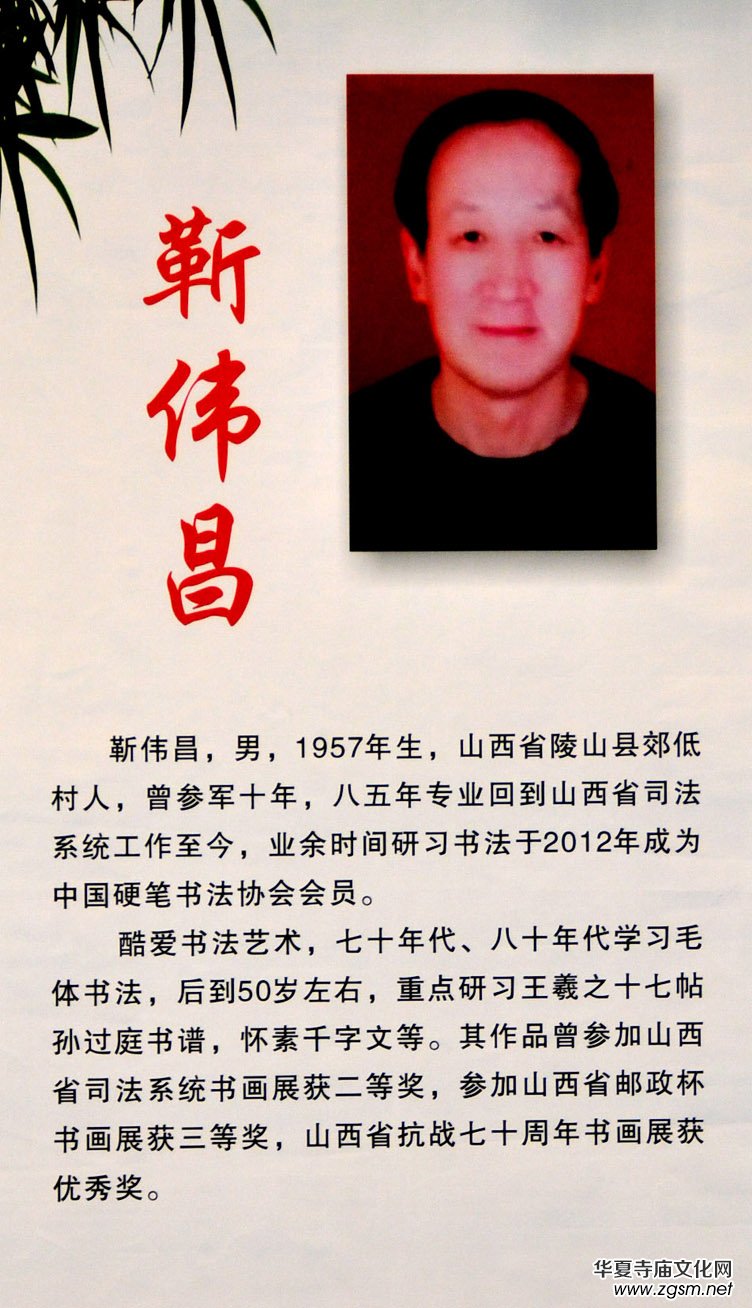 靳伟昌
靳伟昌，男，1957年生，山西省陵山县郊低
村人，曾参军十年，八五年专业回到山西省司法
系统工作至今，业余时间研习书法于2012年成为
中国硬笔书法协会会员。
酷爱书法艺术，七十年代、八十年代学习毛
体书法，后到50岁左右，重点研习王羲之十七帖
孙过庭书谱，怀素千字文等。其作品曾参加山西
省司法系统书画展获二等奖，参加山西省邮政杯
书画展获三等奖，山西省抗战七十周年书画展获
优秀奖。
华夏寺庙文化网
www.zgsm.net